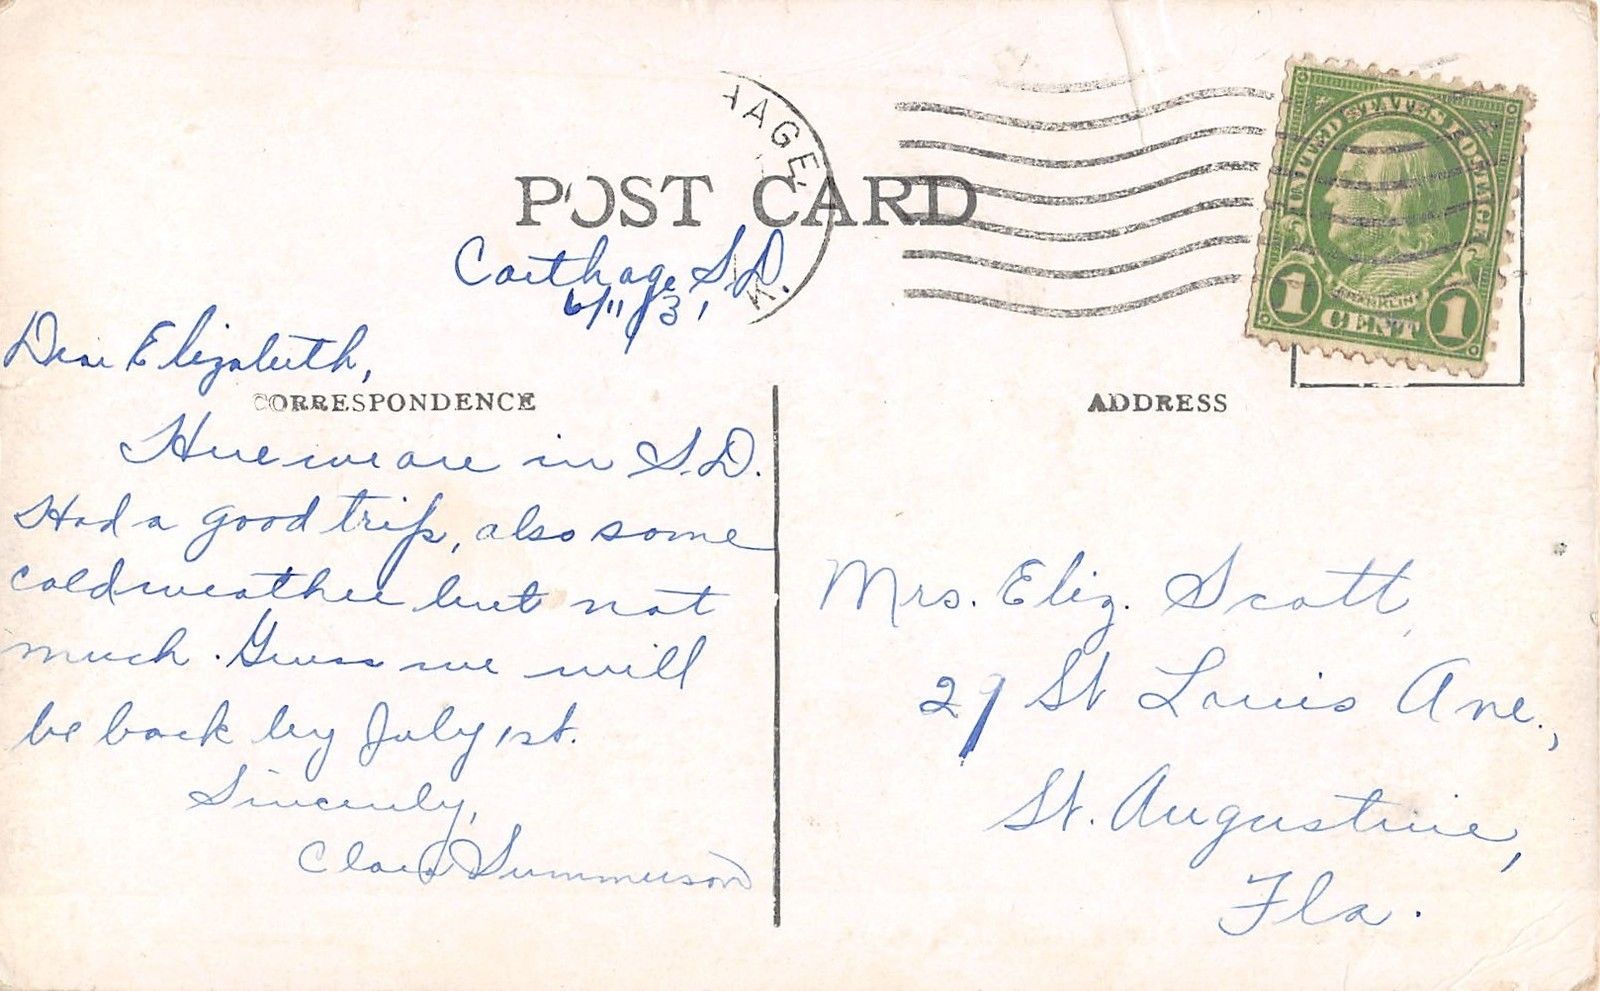 AGE.
POST CARD
Carthage S.D.
6/11/31
Dear Elizabeth,
CORRESPONDENCE
Here we are in S.D.
Had a good trip, also some
cold weather but not
much. Guess we will
be back by July 1st.
Sincerely,
Summerson
UNITED STATES POSTAGE
FRANKLIN
1 CENT 1
ADDRESS
Mrs. Eliz. Scott,
29 St Louis Ave.,
St. Augustine,
Fla.